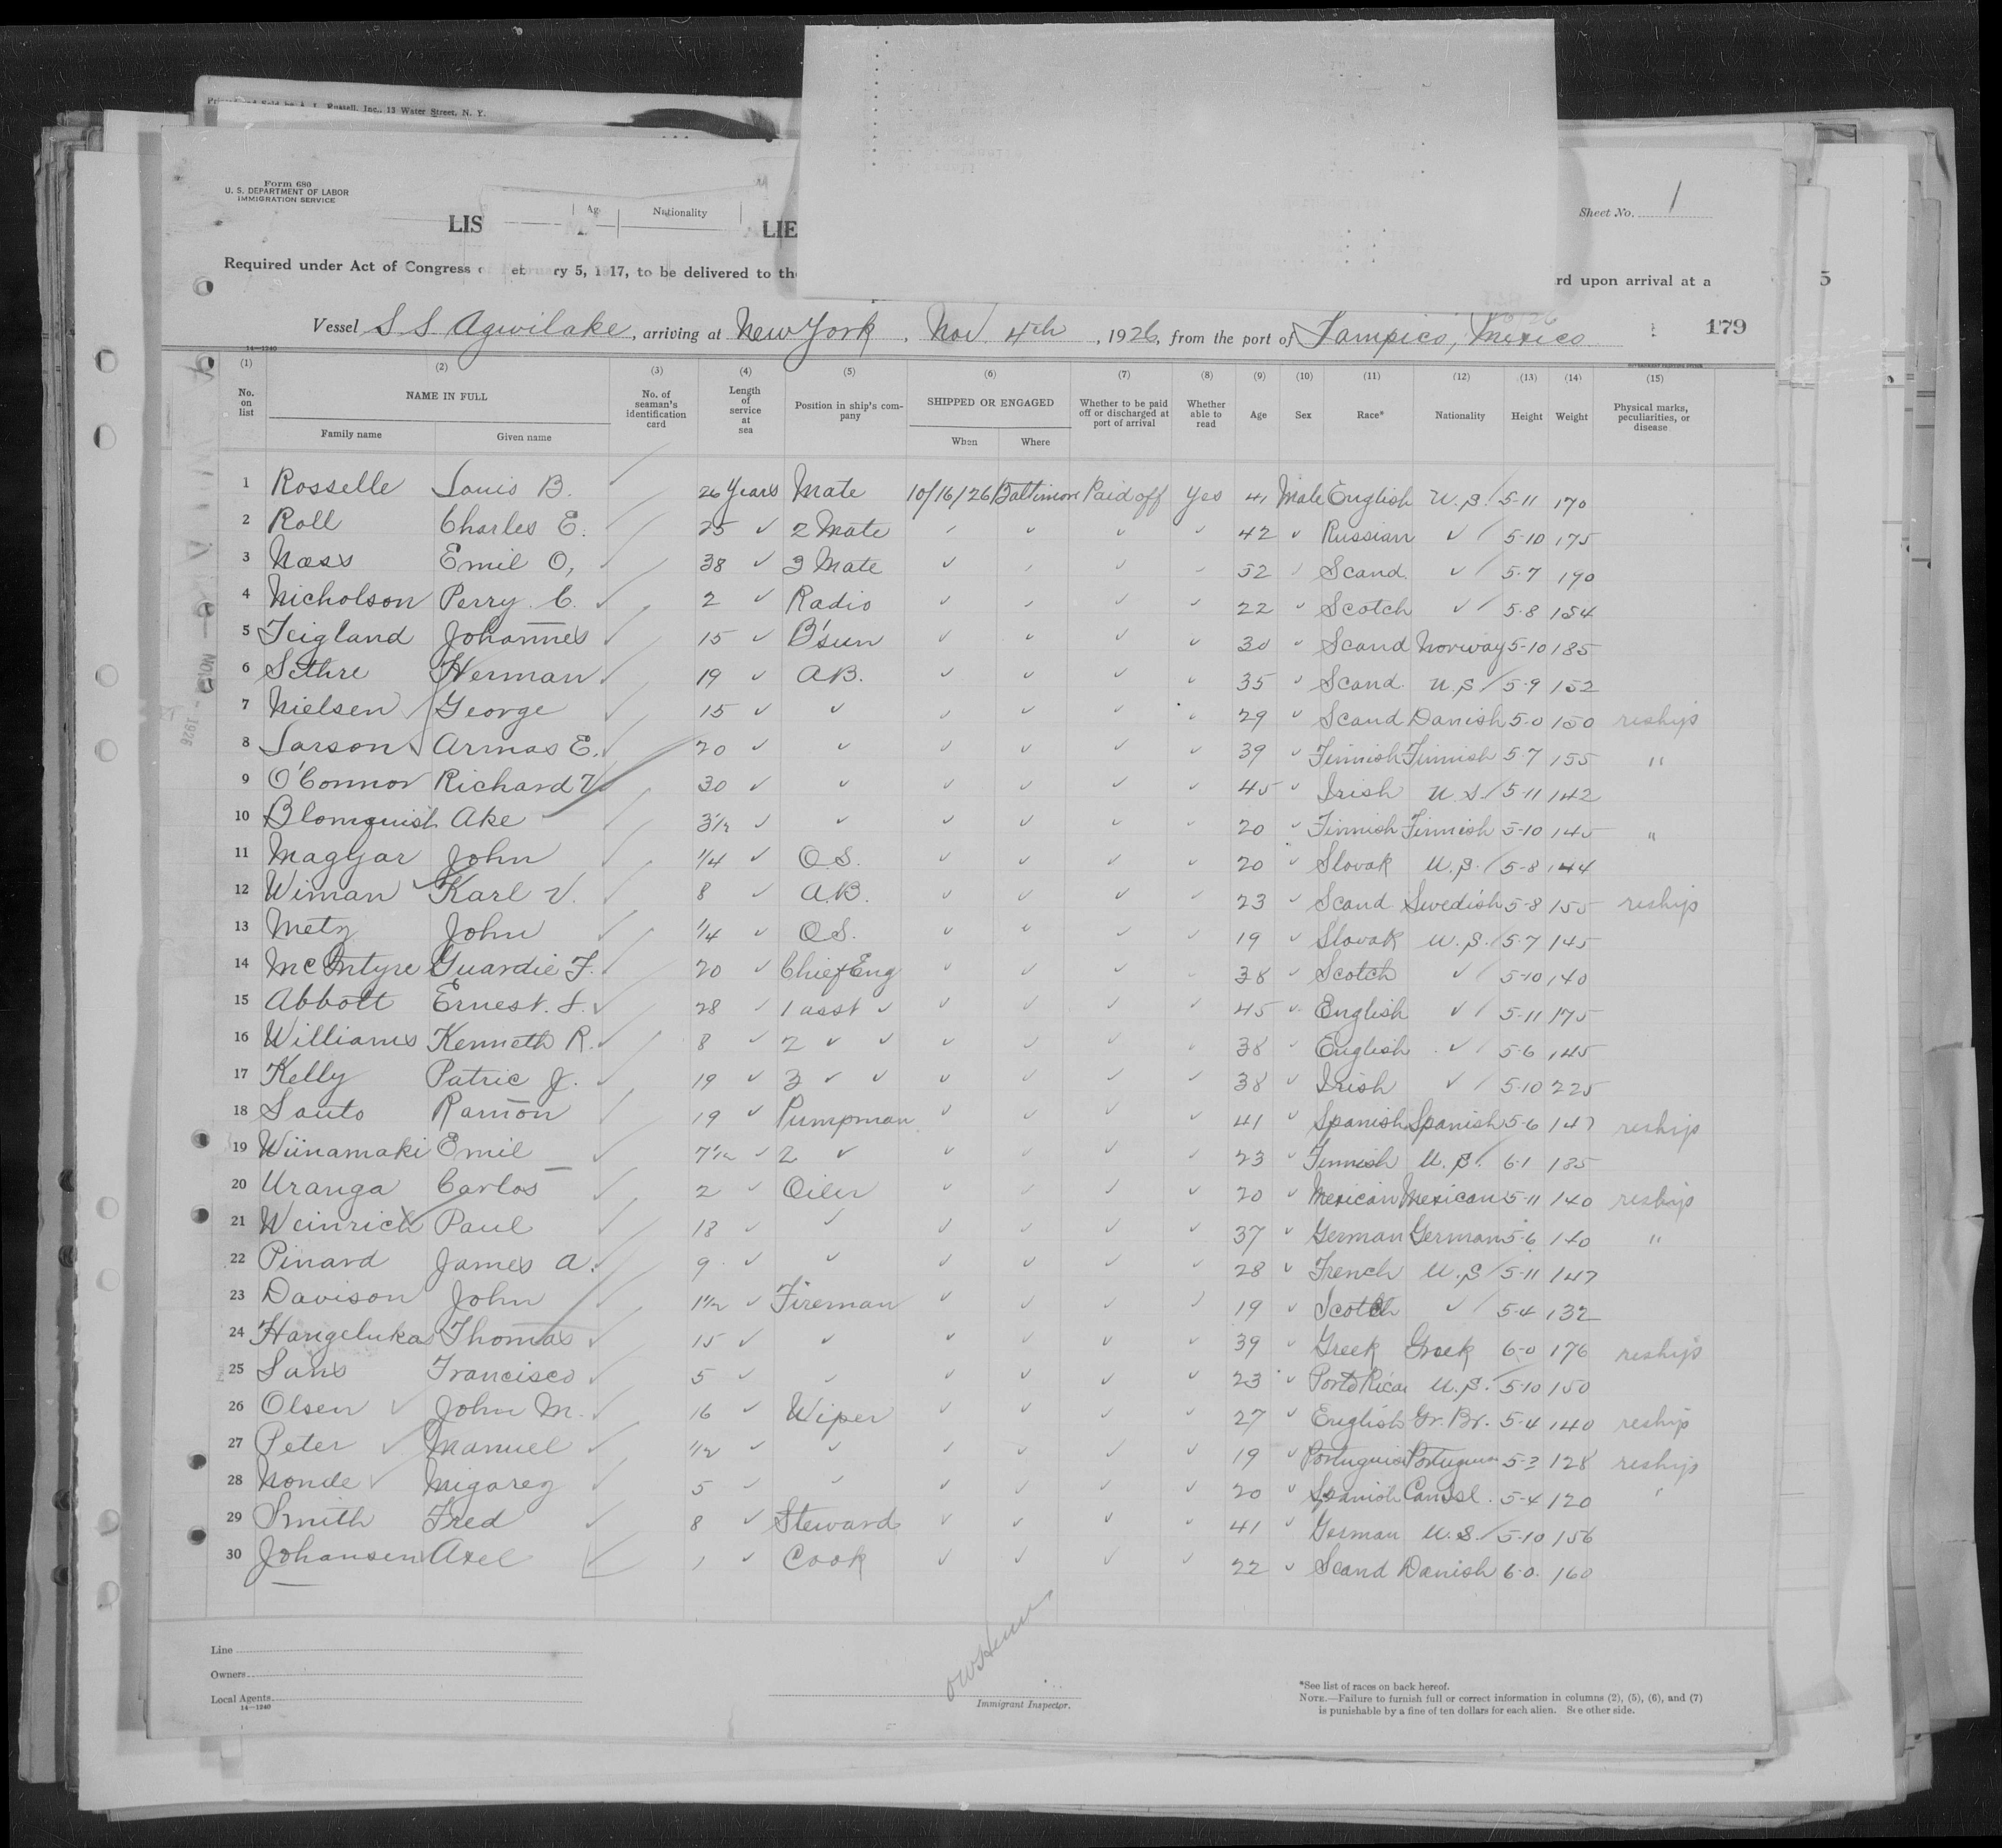 Printed and Sold by A. L. Russell, Inc., 13 Water Street, N. Y.
Form 680
U. S. DEPARTMENT OF LABOR
IMMIGRATION SERVICE
Nationality
Sheet No. 1
LIS LIE
Required under Act of Congress of February 5, 1917, to be delivered to the rd upon arrival at a
5
Vessel S S Agwilake, arriving at New York, Nov. 4th, 1926, from the port of Tampico, Mexico 179
14—1240
(1) (2) (3) (4) (5) (6) (7) (8) (9) (10) (11) (12) (13) (14) (15)
No. on list NAME IN FULL Family name Given name No. of seaman's identification card Length of service at sea Position in ship's company SHIPPED OR ENGAGED When Where Whether to be paid off or discharged at port of arrival Whether able to read Age Sex Race* Nationality Height Weight Physical marks, peculiarities, or disease
1 Rosselle Louis B. 26 years Mate 10/16/26 Baltimore Paid off Yes 41 Male English U.S. 5-11 170
2 Roll Charles E. 25 ✓ 2 Mate ✓ ✓ ✓ ✓ 42 ✓ Russian ✓ 5-10 175
3 Naess Emil O, 38 ✓ 3 Mate ✓ ✓ ✓ ✓ 52 ✓ Scand. ✓ 5-7 190
4 Nicholson Perry C. 2 ✓ Radio ✓ ✓ ✓ ✓ 22 ✓ Scotch ✓ 5-8 154
5 Teigland Johannes 15 ✓ B'sun ✓ ✓ ✓ ✓ 30 ✓ Scand Norway 5-10 185
6 Sethre Herman 19 ✓ A.B. ✓ ✓ ✓ ✓ 35 ✓ Scand. U.S 5-9 152
7 Nielsen George 15 ✓ ✓ ✓ ✓ ✓ ✓ 29 ✓ Scand Danish 5-0 150 reships
8 Larson Armas E. 20 ✓ ✓ ✓ ✓ ✓ ✓ 39 ✓ Finnish Finnish 5-7 155 "
9 O'Connor Richard V 30 ✓ ✓ ✓ ✓ ✓ ✓ 45 ✓ Irish U.S. 5-11 142
10 Blomquist Ake 3 1/2 ✓ ✓ ✓ ✓ ✓ ✓ 20 ✓ Finnish Finnish 5-10 145 "
11 Magyar John 1/4 ✓ O.S. ✓ ✓ ✓ ✓ 20 ✓ Slovak U.S. 5-8 144
12 Wiman Karl V. 8 ✓ A.B. ✓ ✓ ✓ ✓ 23 ✓ Scand. Swedish 5-8 155 reships
13 Metz John 1/4 ✓ O.S. ✓ ✓ ✓ ✓ 19 ✓ Slovak U.S. 5-7 145
14 McIntyre Guardie F. 20 ✓ Chief Eng ✓ ✓ ✓ ✓ 38 ✓ Scotch ✓ 5-10 140
15 Abbott Ernest. S. 28 ✓ 1 asst ✓ ✓ ✓ ✓ ✓ 45 ✓ English ✓ 5-11 175
16 Williams Kenneth R. 8 ✓ 2 ✓ ✓ ✓ ✓ ✓ ✓ 38 ✓ English ✓ 5-6 145
17 Kelly Patric J. 19 ✓ 3 ✓ ✓ ✓ ✓ ✓ ✓ 38 ✓ Irish ✓ 5-10 225
18 Santo Ramon 19 ✓ Pumpman ✓ ✓ ✓ ✓ 41 ✓ Spanish Spanish 5-6 147 reships
19 Wiinamaki Emil 7 1/2 ✓ 2 ✓ ✓ ✓ ✓ ✓ 23 ✓ Finnish U.S. 6-1 185
20 Uranga Carlos 2 ✓ Oiler ✓ ✓ ✓ ✓ 20 ✓ Mexican Mexican 5-11 140 reships
21 Weinrich Paul 18 ✓ ✓ ✓ ✓ ✓ ✓ 37 ✓ German German 5-6 140 "
22 Pinard James A. 9 ✓ ✓ ✓ ✓ ✓ ✓ 28 ✓ French U.S 5-11 147
23 Davison John 1 1/2 ✓ Fireman ✓ ✓ ✓ ✓ 19 ✓ Scotch ✓ 5-4 132
24 Hangelukas Thomas 15 ✓ ✓ ✓ ✓ ✓ ✓ 39 ✓ Greek Greek 6-0 176 reships
25 Sans Francisco 5 ✓ ✓ ✓ ✓ ✓ ✓ 23 ✓ Porto Rican U.S. 5-10 150
26 Olsen John M. 16 ✓ Wiper ✓ ✓ ✓ ✓ 27 ✓ English Gr. Br. 5-4 140 reship
27 Peter Manuel 1/2 ✓ ✓ ✓ ✓ ✓ ✓ 19 ✓ Portuguese Portuguese 5-2 128 reships
28 Nonde Migarez 5 ✓ ✓ ✓ ✓ ✓ ✓ 20 ✓ Spanish 5-4 120 "
29 Smith Fred 8 ✓ Steward ✓ ✓ ✓ ✓ 41 ✓ German U.S. 5-10 156
30 Johansen Axel 1 ✓ Cook ✓ ✓ ✓ ✓ 22 ✓ Scand Danish 6-0 160
Line
Owners
Local Agents
14—1240
Immigrant Inspector.
*See list of races on back hereof.
NOTE.—Failure to furnish full or correct information in columns (2), (5), (6), and (7)
is punishable by a fine of ten dollars for each alien. See other side.